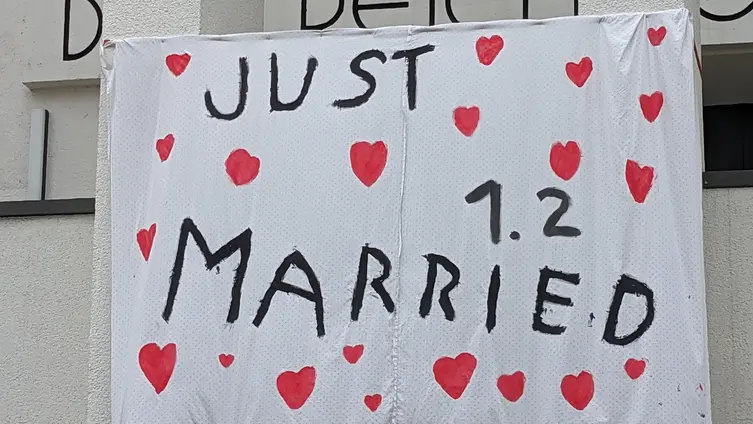 DEICH
JUST
1.2
MARRIED